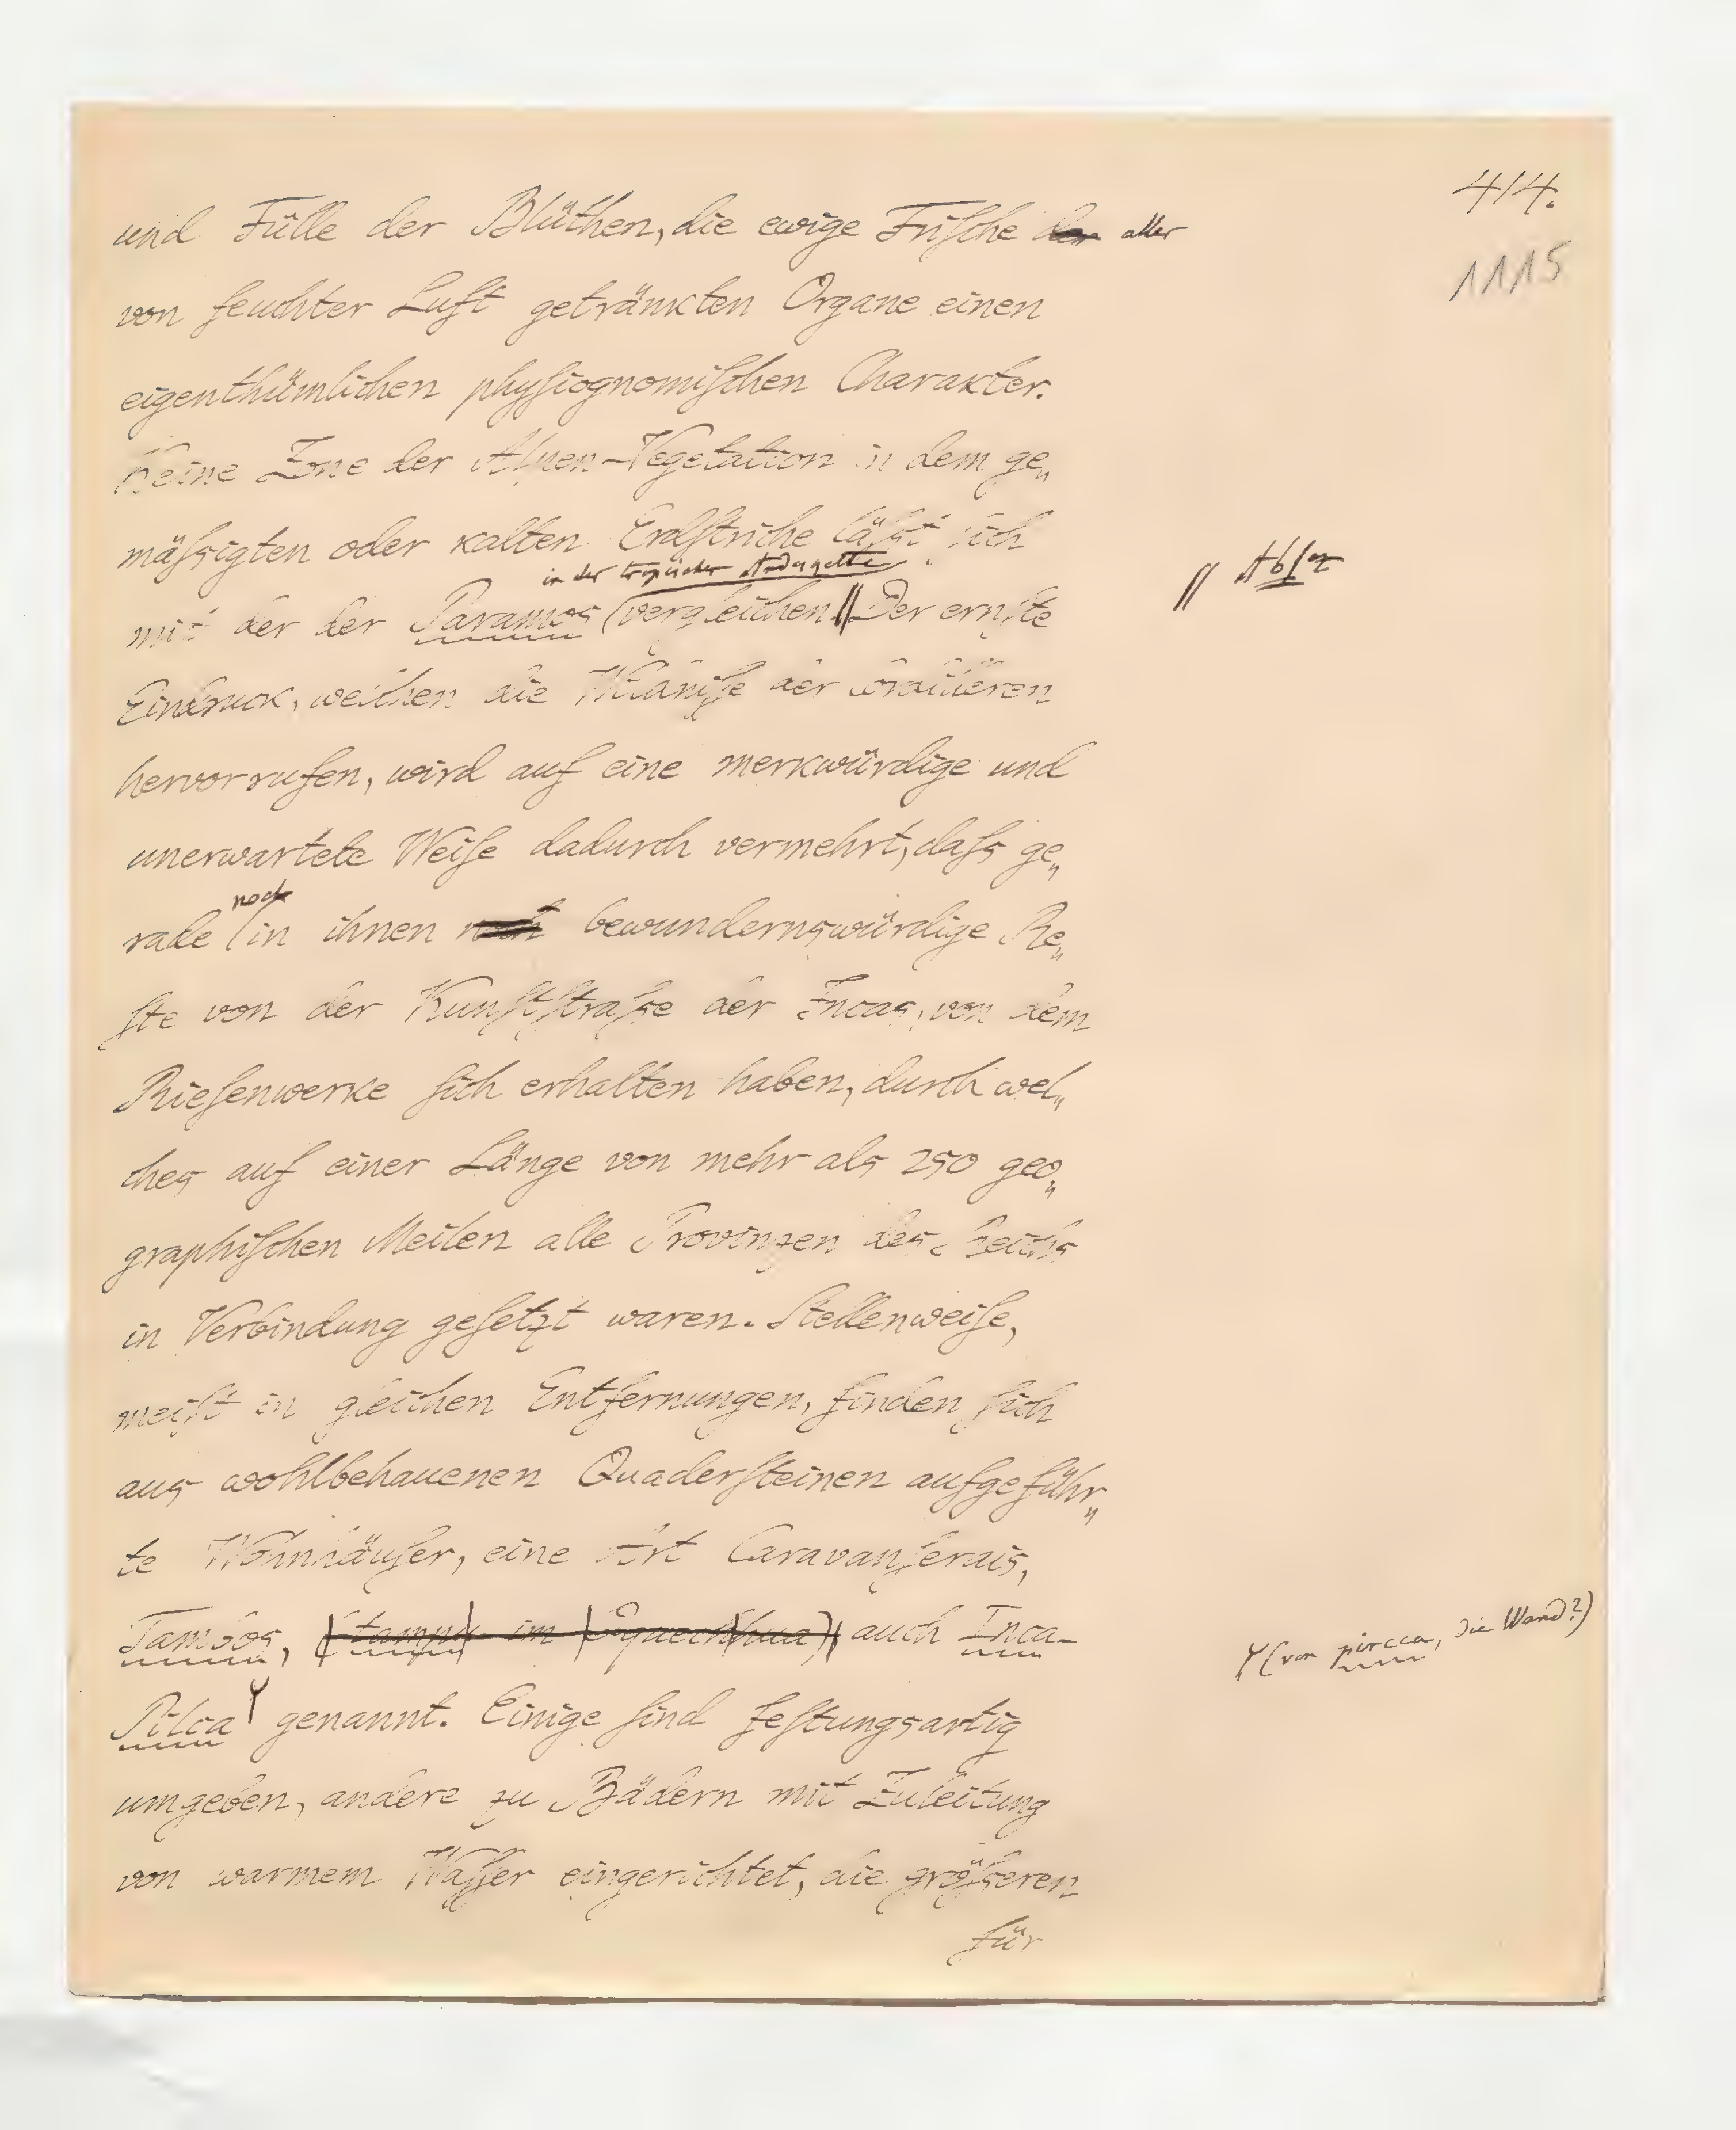 414.
1115
und Fülle der Blüthen, die ewige Frische der aller
von feuchter Luft getränkten Organe einen
eigenthümlichen physiognomischen Charakter.
Keine Zone der Alpen-Vegetation in dem ge„
mäßigten oder kalten Erdstriche läßt sich
in der tropischen Andeskette
mit der der Paramos vergleichen || Der ernste
|| Absaz
Eindruck, welchen die Wildniße der Cordilleren
hervorrufen, wird auf eine merkwürdige und
unerwartete Weise dadurch vermehrt, daß ge„
noch
rade in ihnen noch bewundernswürdige Re„
ste von der Kunststraße der Incas, von dem
Riesenwerke sich erhalten haben, durch wel„
ches auf einer Länge von mehr als 250 geo„
graphischen Meilen alle Provinzen des Reichs
in Verbindung gesetzt waren. Stellenweise,
meist in gleichen Entfernungen, finden sich
aus wohlbehauenen Quadersteinen aufgeführ„
te Wohnhäuser, eine Art Caravanserais,
Tambos, (tampu im Qquechhua), auch Inca-
(von pircca, die Wand?)
Pilca genannt. Einige sind festungsartig
umgeben, andere zu Bädern mit Zuleitung
von warmem Wasser eingerichtet, die größeren
für